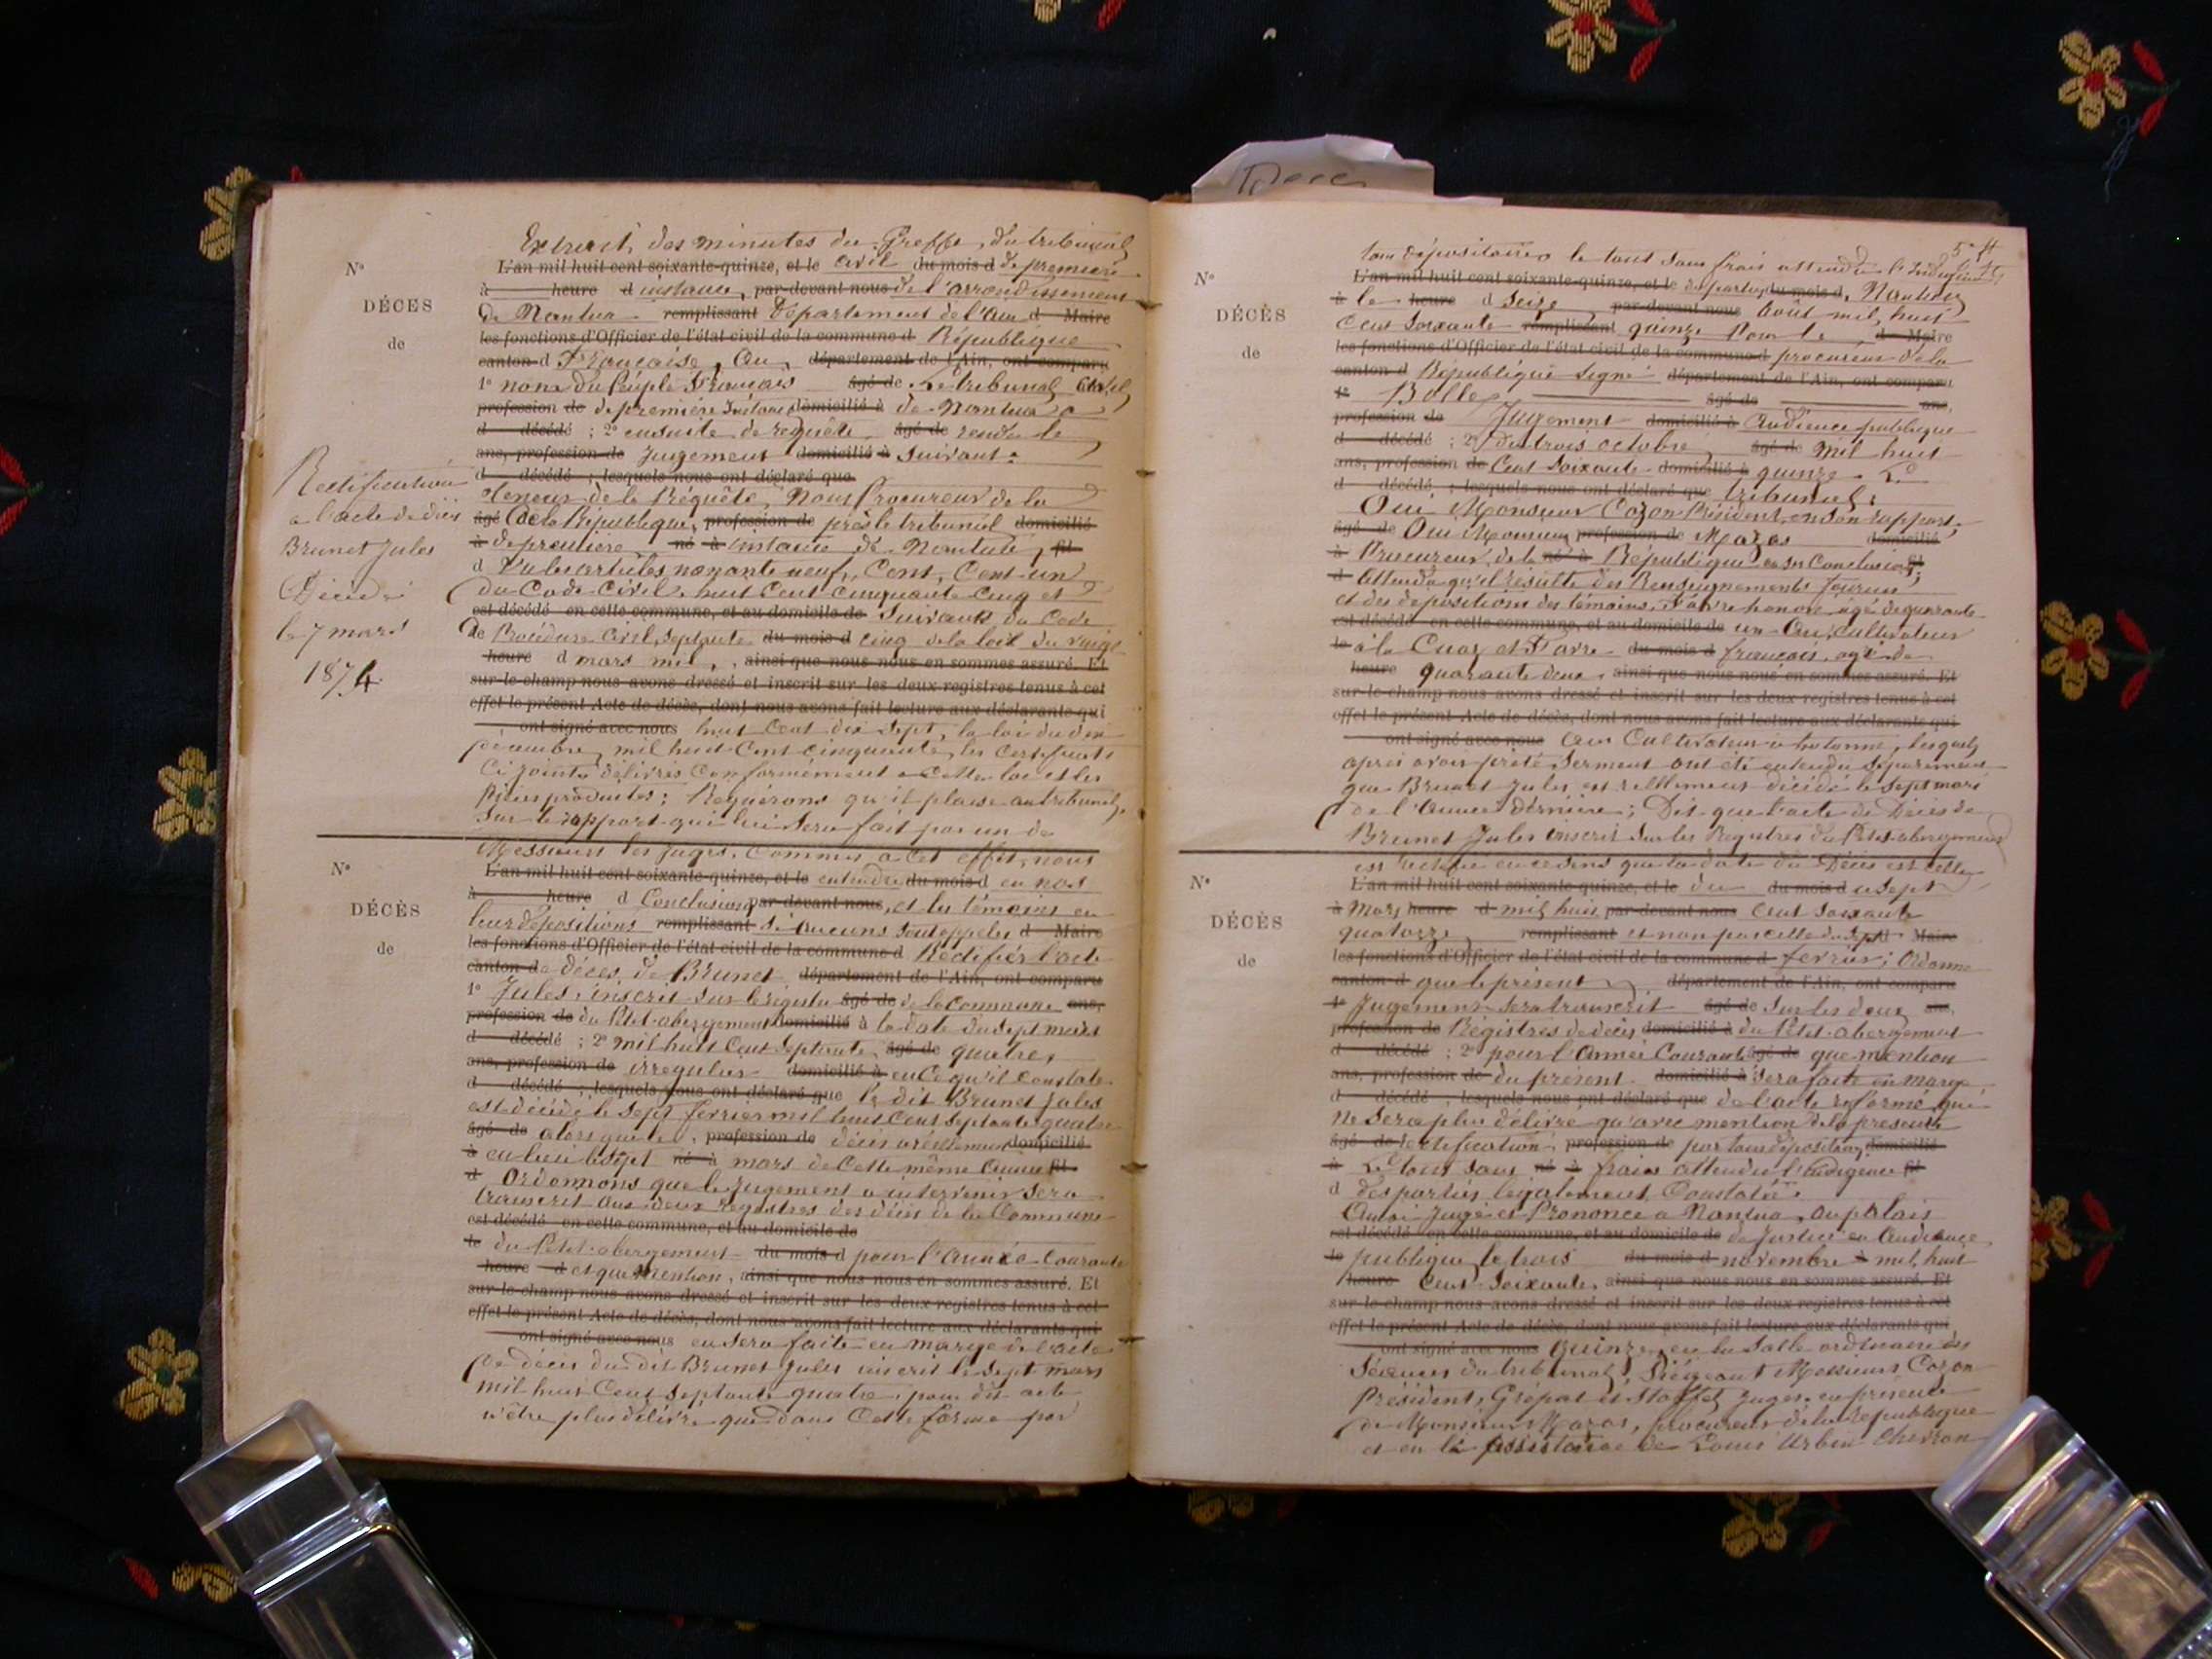 Décès
Extrait des minutes du Greffe, du tribunal
N° L'an mil huit cent soixante-quinze, et le civil du mois d de premiere
à heure d instance, par-devant nous de l'arrondissement
DÉCÈS de Nantua remplissant Département de l'Ain d Maire
les fonctions d'Officier de l'état civil de la commune d République
de canton d Française, Au, département de l'Ain, ont comparu
1° nom du Peuple Français âgé de Le tribunal Civil
profession de de première Instance domicilié à de Nantua a
d décédé ; 2° ensuite de requête âgé de rendu le
ans, profession de Jugement domicilié à Suivant :
d décédé ; lesquels nous ont déclaré que
Rectification
a l'acte de décès
Brunet Jules
Décédé
le 7 mars
1874
teneur de la Réquête, Nous Procureur de la
âgé de la République, profession de près le tribunal domicilié
à de première né à instance de Nantua, fil
d Vu les articles nonante neuf, Cent, Cent-un
du Code Civil, huit Cent cinquante Cinq et
est décédé en cette commune, et au domicile de Suivant du Code
de Procédure Civil, Septante du mois d cinq de la loi du vingt
heure d mars mil, , ainsi que nous nous en sommes assuré. Et
sur-le-champ nous avons dressé et inscrit sur les deux registres tenus à cet
effet le présent Acte de décès, dont nous avons fait lecture aux déclarants qui
ont signé avec nous huit Cent dix Sept, la loi du dix
décembre mil huit Cent cinquante, les Certificats
Ci joints délivrés Conformément a cette loi et les
Pièces produites ; Requérons qu'il plaise au tribunal,
Sur le rapport qui lui Sera fait par un de
Messieurs les Juges, Commis a Cet effet, nous
N° L'an mil huit cent soixante-quinze, et le entendre du mois d en nos
à heure d Conclusions par-devant nous, et les témoins en
DÉCÈS leur dépositions remplissant Si Aucuns Sont appelés d Maire
les fonctions d'Officier de l'état civil de la commune d Rectifier l'acte
de canton de décès de Brunet département de l'Ain, ont comparu
1° Jules, inscrit Sur le registre âgé de de la Commune ans,
profession de du Petit-abergement domicilié à la date du Sept mars
d décédé ; 2° mil huit Cent Septante âgé de quatre,
ans, profession de irregulier domicilié à en Ce qu'il Constate
d décédé ; lesquels nous ont déclaré que le dit Brunet Jules
est décédé le Sept ferrier mil huit Cent Septante quatre
âgé de alors que le profession de décès a réellement domicilié
à eu lieu le Sept né à mars de Cette même Année fil
d Ordonnons que le Jugement a intervenir Sera
transcrit aux deux registres des décès de la Commune
est décédé en cette commune, et au domicile de
le du Petit-abergement du mois d pour l'Année Courante
heure d et que Mention, ainsi que nous nous en sommes assuré. Et
sur-le-champ nous avons dressé et inscrit sur les deux registres tenus à cet
effet le présent Acte de décès, dont nous avons fait lecture aux déclarants qui
ont signé avec nous en Sera faite en marge de l'acte
de décès du dit Brunet Jules inscrit le Sept mars
mil huit Cent Septante quatre, pour dit acte
n'être plus délivré que dans Cette forme par
tous dépositaires le tout Sans frais attendu l'Indigence
N° L'an mil huit cent soixante-quinze, et le des parties, du mois d, Nantua
à le heure d Seize par-devant nous Août mil, huit
DÉCÈS Cent Soixante remplissant quinze Pour le d Maire
les fonctions d'Officier de l'état civil de la commune d procureur de la
de canton d République Signé département de l'Ain, ont comparu
1° Bolle âgé de ans,
profession de Jugement domicilié à Audience publique
d décédé ; 2° du trois octobre âgé de Mil huit
ans, profession de Cent Soixante domicilié à quinze. Le
d décédé ; lesquels nous ont déclaré que tribunal ;
Oui Monsieur Cozon Président, en Son rapport,
âgé de Oui Monsieur profession de Mazas domicilié
à Procureur de la né à République en Ses Conclusions, fil
d Attendu qu'il résulte des Renseignements fournis
et des depositions des témoins, Favre honoré agé de quarante
est décédé en cette commune, et au domicile de un Ans, Cultivateur
le à la Cuaz et Favre du mois d françois agé de
heure quarante deux, ainsi que nous nous en sommes assuré. Et
sur-le-champ nous avons dressé et inscrit sur les deux registres tenus à cet
effet le présent Acte de décès, dont nous avons fait lecture aux déclarants qui
ont signé avec nous Ans Cultivateur à hotonne, lesquels
après avoir prêté Serment ont été entendu Séparément
que Brunet Jules est réellement décédé le Sept mars
de l'Année dernière ; Dit que l'acte de Décès de
Brunet Jules inscrit Sur les Registres du Petit-abergement
est rectifié en ce Sens que la date du Décès est celle
N° L'an mil huit cent soixante-quinze, et le du du mois d u Sept
à Mars heure d mil huit par-devant nous Cent Soixante
DÉCÈS quatorze, remplissant et non pas celle du Sept d Maire
les fonctions d'Officier de l'état civil de la commune d ferrier ; Ordonne
de canton d que le présent département de l'Ain, ont comparu
1° Jugement Sera transcrit âgé de Sur les deux ans,
profession de Régistres de décès domicilié à du Petit-abergement
d décédé ; 2° pour l'Année Courante âgé de que mention
ans, profession de du présent domicilié à Sera faite en Marge
d décédé ; lesquels nous ont déclaré que de l'acte réformé qui
Ne Sera plus délivré qu'avec mention de la presente
âgé de rectification, profession de par tous dépositaires domicilié
à Le tout Sans né à frais attendu l'indigence fil
d des parties légalement Constatée.
Ainsi Jugé et Prononcé a Nantua, au palais
est décédé en cette commune, et au domicile de de Justice en Audience
le publique le trois du mois d novembre à mil, huit
heure Cent Soixante, ainsi que nous nous en sommes assuré. Et
sur-le-champ nous avons dressé et inscrit sur les deux registres tenus à cet
effet le présent Acte de décès, dont nous avons fait lecture aux déclarants qui
ont signé avec nous Quinze, en la Salle ordinaire des
Séances du tribunal, Siégeant Messieurs Cozon
Président, Grépat et Stoffel Juges, en présence
de Monsieur Mazas, procureur de la république
et en la assistance de Louis Urbin Chevron